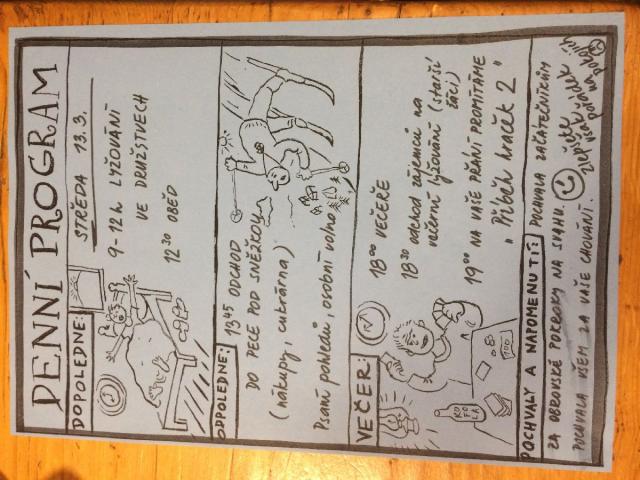 DENNÍ PROGRAM
DOPOLEDNE:
STŘEDA 13.3.
9-12 h LYŽOVÁNÍ
VE DRUŽSTVECH
12 30 OBĚD
ODPOLEDNE:
13 45 ODCHOD
DO PECE POD SNĚŽKOU
(nákupy, cukrárna)
Psaní pohledů, osobní volno
VEČER:
18 00 VEČEŘE
18 30 odchod zájemců na
večerní lyžování (starší
žáci)
19 00 NA VAŠE PŘÁNÍ PROMÍTÁME
„Příběh hraček 2"
KOFOLA
100
POCHVALY A NAPOMENUTÍ:
POCHVALA ZAČÁTEČNÍKŮM
ZA OBROVSKÉ POKROKY NA SVAHU.
POCHVALA VŠEM ZA VAŠE CHOVÁNÍ.
Zlepšete
však pořádek
na pokojích